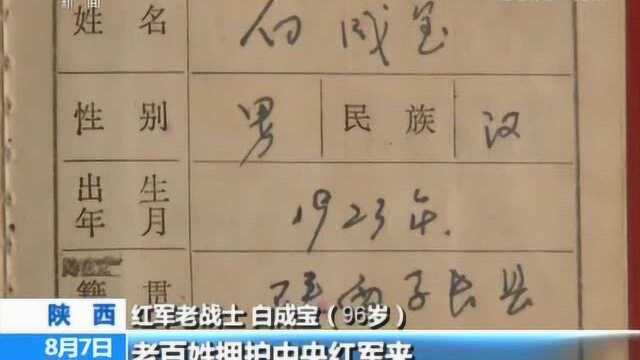 新闻
姓名 白成宝
性别 男 民族 汉
出生年月 1923年.
籍贯 陕西子长县
陕西 红军老战士 白成宝（96岁）
8月7日 老百姓拥护中央红军来